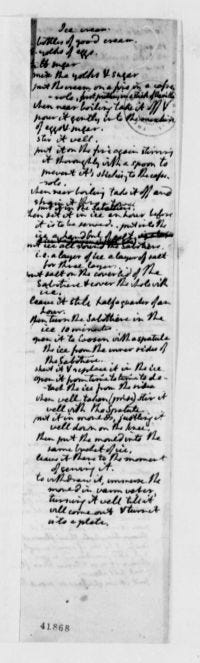 Ice cream.
2. bottles of good cream.
6. yolks of eggs.
1/2 lb sugar
mix the yolks & sugar
put the cream on a fire in a casse-
role, first putting in a stick of Vanilla.
when near boiling take it off &
pour it gently into the mixture
of eggs & sugar.
stir it well.
put it on the fire again stirring
it thoroughly with a spoon to
prevent it's sticking to the casse-
role.
when near boiling take it off and
strain it thro' a towel.
put it in the Sabottiere
then set it in ice an hour before
it is to be served. put into the
ice a handful of salt.
put salt on the coverlid of the
Sabotiere & cover the whole with
ice.
leave it still half a quarter of an
hour.
then turn the Sabottiere in the
ice 10 minutes
open it to loosen with a spatula
the ice from the inner sides of
the Sabotiere.
shut it & replace it in the ice
open it from time to time to de-
tach the ice from the sides
when well taken (prise) stir it
well with the Spatula.
put it in moulds, justling it
well down on the knee.
then put the mould into the
same bucket of ice.
leave it there to the moment
of serving it.
to withdraw it, immerse the
mould in warm water,
turning it well till it
will come out & turn it
into a plate.
41868